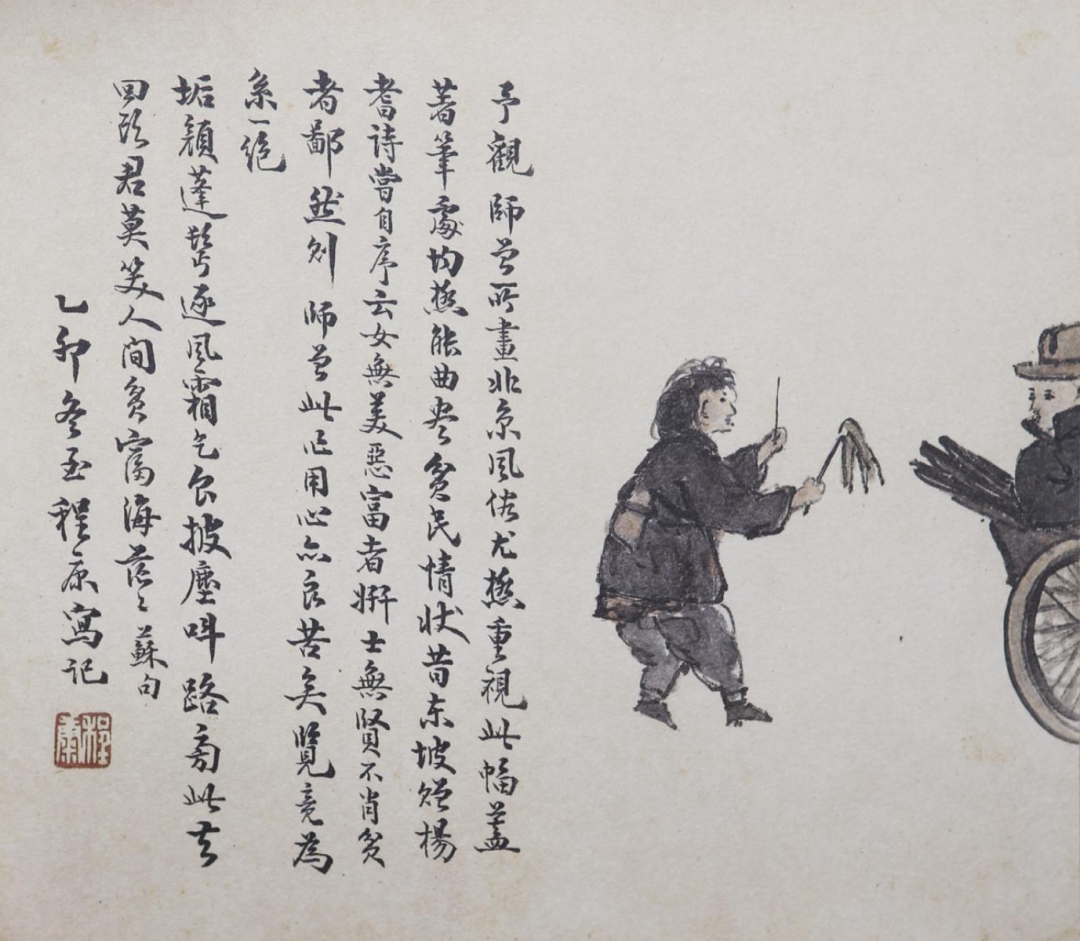 予觀師曾所畫北京風俗尤極重視此幅蓋
著筆處均極能曲盡貧民情狀昔東坡贈楊
耆詩嘗自序云女無美惡富者妍士無賢不肖貧
者鄙然則師曾此作用心亦良苦矣覽竟為
系一絕
垢顏蓬鬢逐風霜乞食披塵叫路旁此去
回頭君莫笑人間貧富海茫茫蘇句
乙卯冬至程康寫記
程康